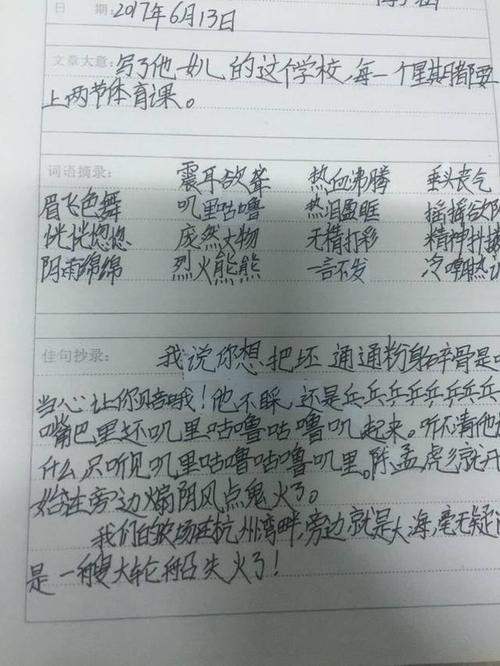 日 期:
2017年6月13日
文章大意: 写了他女儿的这个学校,每一个星期都要
上两节体育课。
词语摘录: 震耳欲聋 热血沸腾 垂头丧气
眉飞色舞 叽里咕噜 热泪盈眶 摇摇欲
恍恍惚惚 庞然大物 无精打彩 精神抖
阴雨绵绵 烈火熊熊 一言不发 冷嘲热
佳句抄录: 我说你想把坯通通粉身碎骨是
当心让你赔哦!他不睬,还是乒乒乒乒乒乒乒
嘴巴里还叽里咕噜咕噜叽起来。听不清他
什么,只听见叽里咕噜咕噜叽里。陈孟虎就开
始在旁边煽阴风点鬼火了。
我们的农场在杭州湾畔,旁边就是大海,毫无疑
是一艘大轮船失火了!